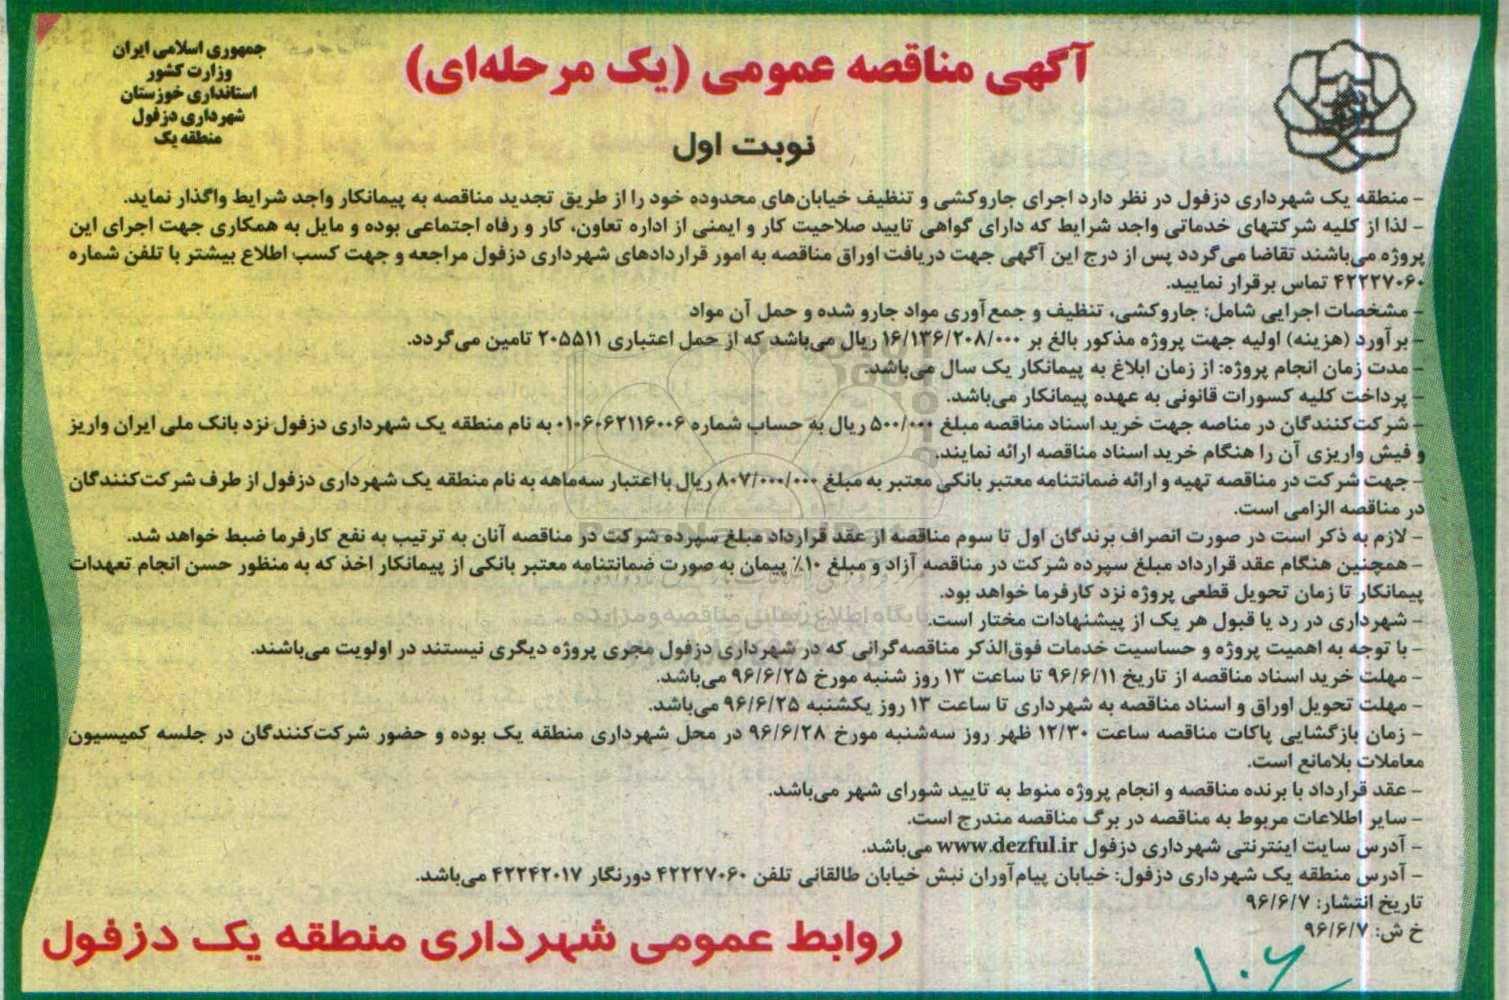 جمهوری اسلامی ایران
وزارت کشور
استانداری خوزستان
شهرداری دزفول
منطقه یک
آگهی مناقصه عمومی (یک مرحله‌ای)
نوبت اول
- منطقه یک شهرداری دزفول در نظر دارد اجرای جاروکشی و تنظیف خیابان‌های محدوده خود را از طریق تجدید مناقصه به پیمانکار واجد شرایط واگذار نماید.
- لذا از کلیه شرکتهای خدماتی واجد شرایط که دارای گواهی تایید صلاحیت کار و ایمنی از اداره تعاون، کار و رفاه اجتماعی بوده و مایل به همکاری جهت اجرای این
پروژه می‌باشند تقاضا می‌گردد پس از درج این آگهی جهت دریافت اوراق مناقصه به امور قراردادهای شهرداری دزفول مراجعه و جهت کسب اطلاع بیشتر با تلفن شماره
۴۲۲۲۷۰۶۰ تماس برقرار نمایید.
- مشخصات اجرایی شامل: جاروکشی، تنظیف و جمع‌آوری مواد جارو شده و حمل آن مواد
- برآورد (هزینه) اولیه جهت پروژه مذکور بالغ بر ۱۶/۱۳۶/۲۰۸/۰۰۰ ریال می‌باشد که از حمل اعتباری ۲۰۵۵۱۱ تامین می‌گردد.
- مدت زمان انجام پروژه: از زمان ابلاغ به پیمانکار یک سال می‌باشد.
- پرداخت کلیه کسورات قانونی به عهده پیمانکار می‌باشد.
- شرکت‌کنندگان در مناصه جهت خرید اسناد مناقصه مبلغ ۵۰۰/۰۰۰ ریال به حساب شماره ۰۱۰۶۰۶۲۱۱۶۰۰۶ به نام منطقه یک شهرداری دزفول نزد بانک ملی ایران واریز
و فیش واریزی آن را هنگام خرید اسناد مناقصه ارائه نمایند.
- جهت شرکت در مناقصه تهیه و ارائه ضمانتنامه معتبر بانکی معتبر به مبلغ ۸۰۷/۰۰۰/۰۰۰ ریال با اعتبار سه‌ماهه به نام منطقه یک شهرداری دزفول از طرف شرکت‌کنندگان
در مناقصه الزامی است.
- لازم به ذکر است در صورت انصراف برندگان اول تا سوم مناقصه از عقد قرارداد مبلغ سپرده شرکت در مناقصه آنان به ترتیب به نفع کارفرما ضبط خواهد شد.
- همچنین هنگام عقد قرارداد مبلغ سپرده شرکت در مناقصه آزاد و مبلغ ۱۰٪ پیمان به صورت ضمانتنامه معتبر بانکی از پیمانکار اخذ که به منظور حسن انجام تعهدات
پیمانکار تا زمان تحویل قطعی پروژه نزد کارفرما خواهد بود.
- شهرداری در رد یا قبول هر یک از پیشنهادات مختار است.
- با توجه به اهمیت پروژه و حساسیت خدمات فوق‌الذکر مناقصه‌گرانی که در شهرداری دزفول مجری پروژه دیگری نیستند در اولویت می‌باشند.
- مهلت خرید اسناد مناقصه از تاریخ ۹۶/۶/۱۱ تا ساعت ۱۳ روز شنبه مورخ ۹۶/۶/۲۵ می‌باشد.
- مهلت تحویل اوراق و اسناد مناقصه به شهرداری تا ساعت ۱۳ روز یکشنبه ۹۶/۶/۲۵ می‌باشد.
- زمان بازگشایی پاکات مناقصه ساعت ۱۲/۳۰ ظهر روز سه‌شنبه مورخ ۹۶/۶/۲۸ در محل شهرداری منطقه یک بوده و حضور شرکت‌کنندگان در جلسه کمیسیون
معاملات بلامانع است.
- عقد قرارداد با برنده مناقصه و انجام پروژه منوط به تایید شورای شهر می‌باشد.
- سایر اطلاعات مربوط به مناقصه در برگ مناقصه مندرج است.
- آدرس سایت اینترنتی شهرداری دزفول www.dezful.ir می‌باشد.
- آدرس منطقه یک شهرداری دزفول: خیابان پیام‌آوران نبش خیابان طالقانی تلفن ۴۲۲۲۷۰۶۰ دورنگار ۴۲۲۴۲۰۱۷ می‌باشد.
تاریخ انتشار: ۹۶/۶/۷
خ ش: ۹۶/۶/۷
روابط عمومی شهرداری منطقه یک دزفول
ParsNamadData
پایگاه اطلاع رسانی مناقصه و مزایده